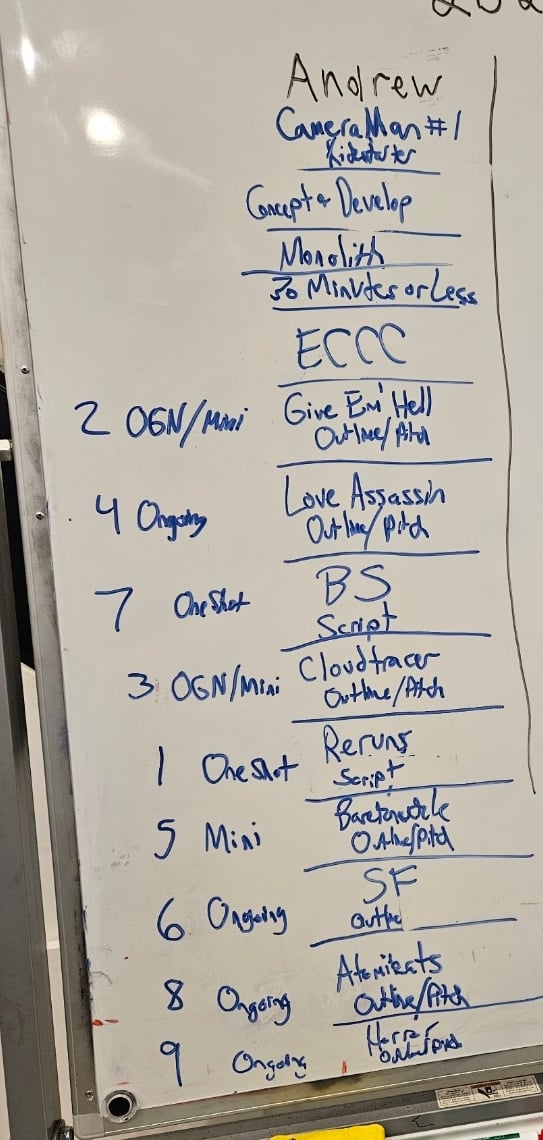 Andrew
CameraMan #1
Kickstarter
Concept & Develop
Monolith
30 Minutes or Less
ECCC
2 OGN/Mini Give Em' Hell
Outline/Pitch
4 Ongoing Love Assassin
Outline/Pitch
7 One Shot BS
Script
3 OGN/Mini Cloudtracer
Outline/Pitch
1 One Shot Reruns
Script
5 Mini Bareknuckle
Outline/Pitch
6 Ongoing SF
Outline
8 Ongoing Atomikats
Outline/Pitch
9 Ongoing Horror
Outline/Pitch